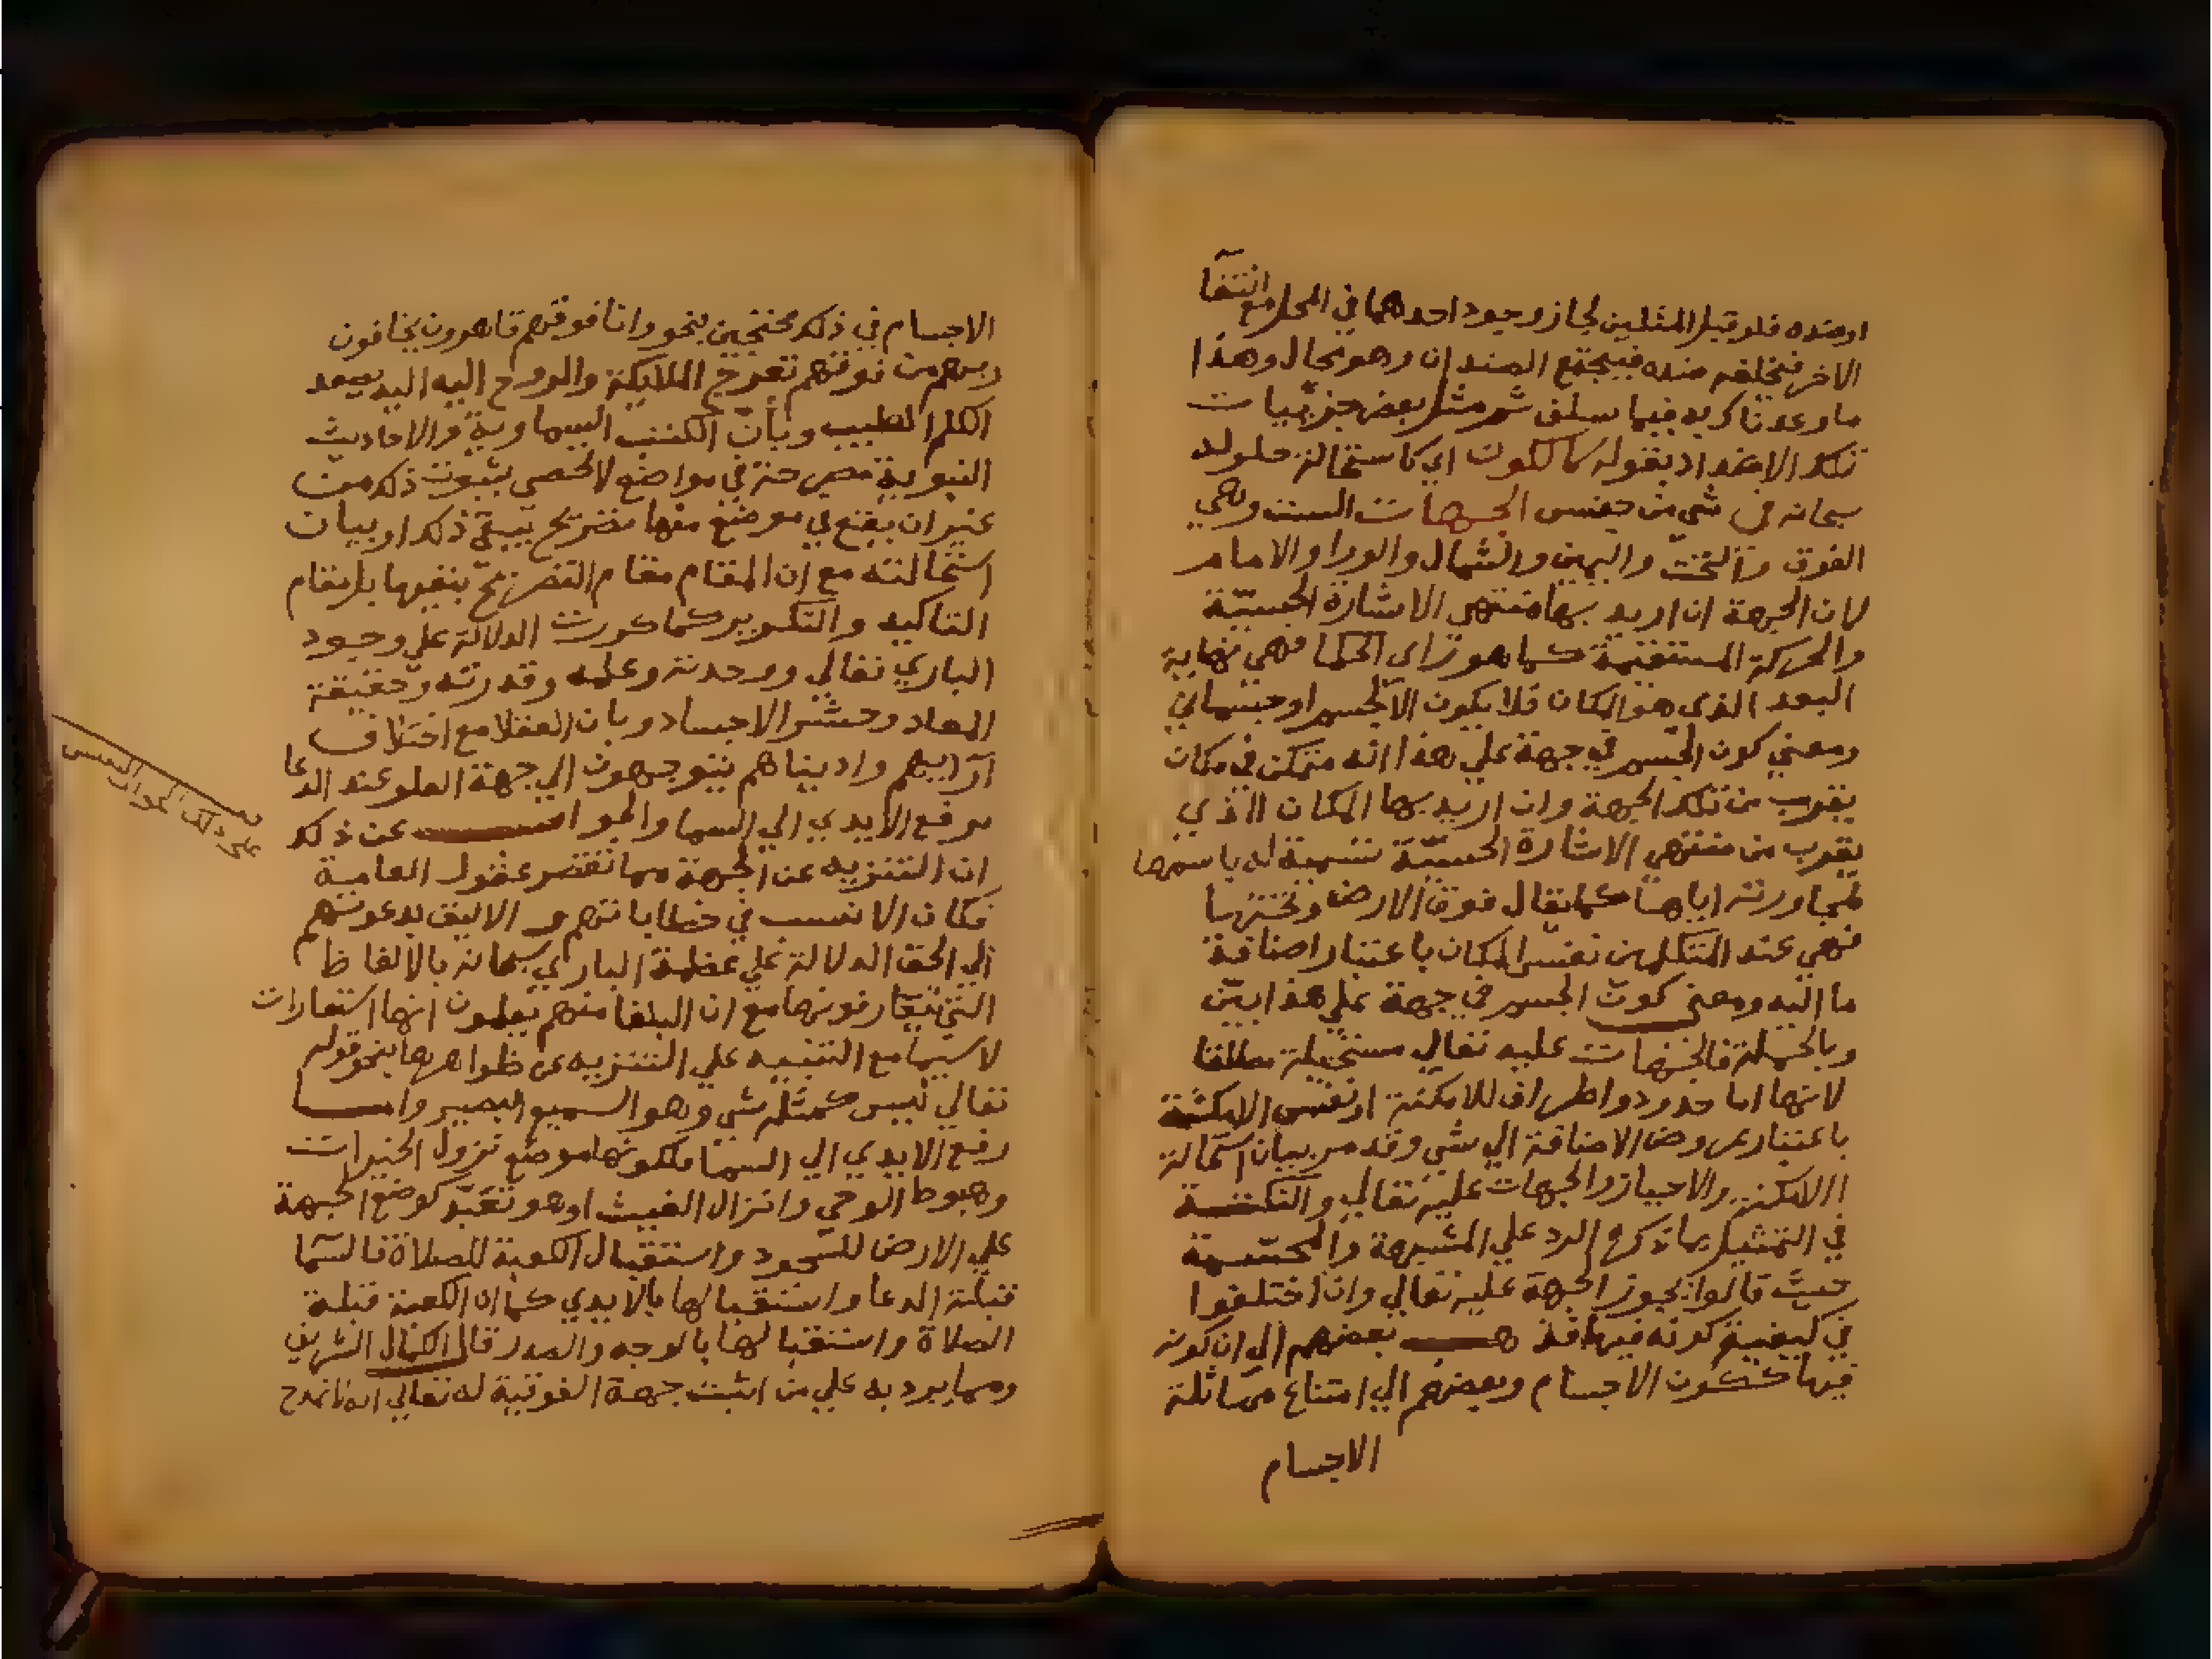 او ضده فلو قبل المثلين لجاز وجود احدهما في المحل مع انتفا
الاخر فيخلفه ضده فيجتمع الضدان وهو محال وهذا
ما وعدناك به فيما سلف ثم مثل بعض جزئيات
تلك الاضداد بقوله كالكون اي كاستحالة حلوله
سبحانه في شي من جنس الجهات الست وهي
الفوق والتحت واليمين والشمال والورا والامام
لان الجهة ان اريد بها منتهى الاشارة الحسية
والحركة المستقيمة كما هو راى الحكما فهي نهاية
البعد الذي هو المكان فلا يكون الا لجسم او جسماني
ومعني كون الجسم في جهة علي هذا انه متمكن في مكان
يقرب من تلك الجهة وان اريد بها المكان الذي
يقرب من منتهي الاشارة الحسية تسمية له باسمها
لمجاورته اياها كما يقال فوق الارض وتحتها
فهي عند المتكلمين نفس المكان باعتبار اضافة
ما اليه ومعني كون الجسم في جهة علي هذا بين
وبالجملة فالجهات عليه تعالي مستحيلة مطلقا
لانها اما حدود واطراف للامكنة او نفس الامكنة
باعتبار عروض الاضافة الي شي وقد مر بيان استحالة
الامكنة والاحياز والجهات عليه تعالي والنكتة
في التمثيل بما ذكره الرد علي المشبهة والمجسمة
حيث قالوا يجوز الجهة عليه تعالي وان اختلفوا
في كيفية كونه فيها فذهب بعضهم الي ان كونه
فيها ككون الاجسام وبعضهم الي امتناع مماثلة
الاجسام
الاجسام في ذلك محتجين بنحو وانا فوقهم قاهرون يخافون
ربهم من فوقهم تعرج الملايكة والروح اليه اليه يصعد
الكلم الطيب وبأن الكتب السماوية والاحاديث
النبوية مصرحة في مواضع لا تحصي بثبوت ذلك من
غير ان يقع في موضع منها تصريح بنفي ذلك او بيان
استحالته مع ان المقام مقام التصريح بنفيها بل مقام
التاكيد والتكرير كما كررت الدلالة علي وجود
الباري تعالي ووحدته وعلمه وقدرته وحقيقة
المعاد وحشر الاجساد وبان العقلا مع اختلاف
آرايهم واديناهم يتوجهون الي جهة العلو عند الدعا
برفع الايدي الي السما والجواب عن ذلك
ان التنزيه عن الجهة مما تقصر عقول العامية
فكان الانسب في خطاباتهم والاليق بدعوتهم
الي الحق الدلالة علي عظمة الباري سبحانه بالالفاظ
التي يتعارفونها مع ان البلغا منهم يعلمون انها استعارات
لا سيما مع التنبيه علي التنزيه عن ظواهرها بنحو قوله
تعالي ليس كمثله شي وهو السميع البصير واما
رفع الايدي الي السما فلكونها موضع نزول الخيرات
وهبوط الوحي وانزال الغيث او هو تعبد كوضع الجبهة
علي الارض للسجود واستقبال الكعبة للصلاة فالسما
قبلة الدعا واستقبالها بالايدي كما ان الكعبة قبلة
الصلاة واستقبالها بالوجه والصدر قال الكمال الشريف
ومما يرد به علي من اثبت جهة الفوقية له تعالي انه تمدح
علي ذلك الجواب